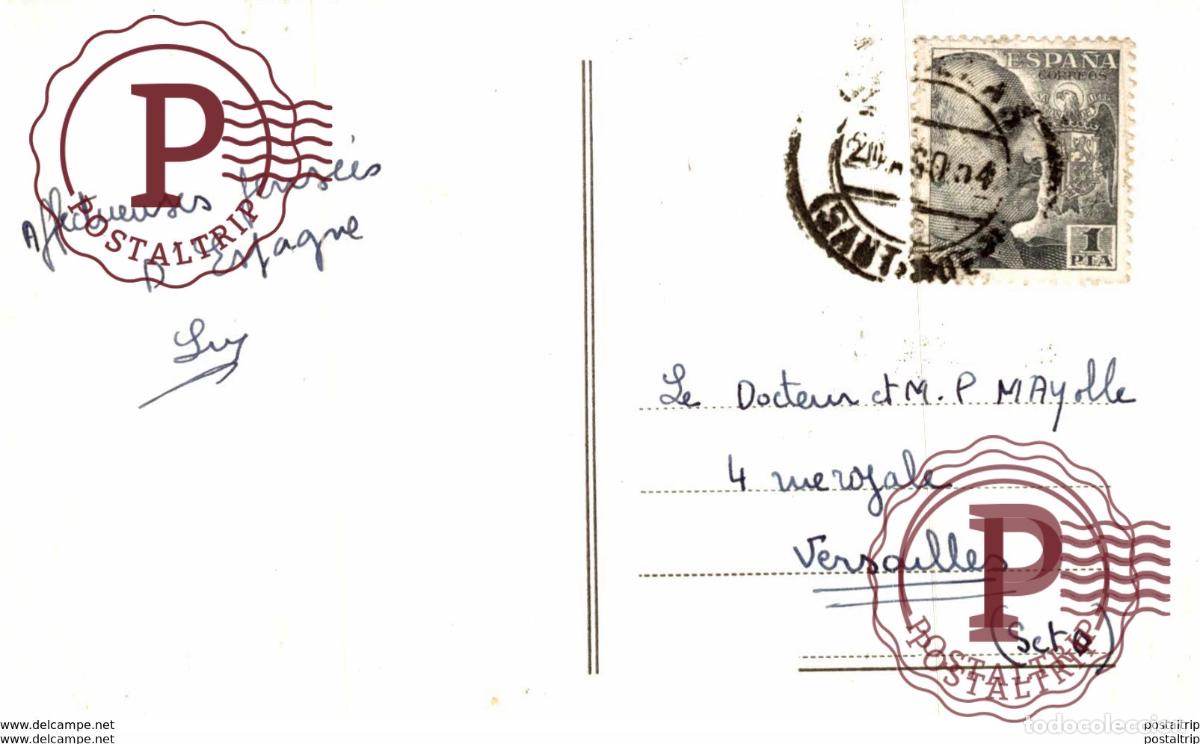 Affectueuses pensées
D Espagne
Luy
ESPAÑA
CORREOS
1
PTA
Le Docteur et M. P MAyolle
4 rue royale
Versailles
(Set O)
P
POSTALTRIP
P
POSTALTRIP
POSTALTRIP
todocoleccion
www.delcampe.net
postaltrip
www.delcampe.net
postaltrip